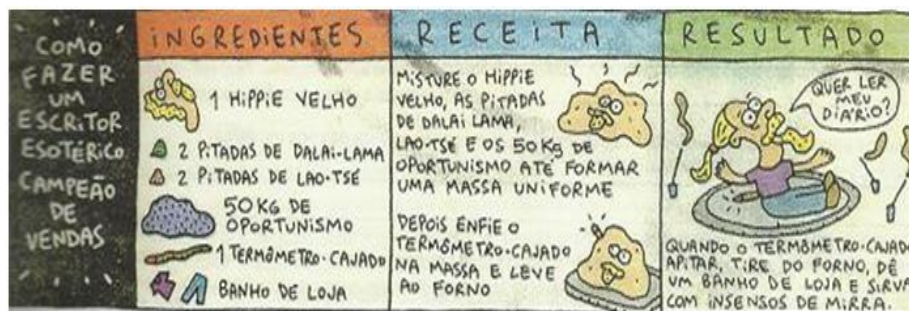 COMO
FAZER
UM
ESCRITOR
ESOTÉRICO
CAMPEÃO
DE
VENDAS
INGREDIENTES
1 HIPPIE VELHO
2 PITADAS DE DALAI-LAMA
2 PITADAS DE LAO-TSÉ
50 KG DE
OPORTUNISMO
1 TERMÔMETRO-CAJADO
BANHO DE LOJA
RECEITA
MISTURE O HIPPIE
VELHO, AS PITADAS
DE DALAI LAMA,
LAO-TSÉ E OS 50 Kg DE
OPORTUNISMO ATÉ FORMAR
UMA MASSA UNIFORME
DEPOIS ENFIE O
TERMÔMETRO-CAJADO
NA MASSA E LEVE
AO FORNO
RESULTADO
QUER LER
MEU
DIÁRIO?
QUANDO O TERMÔMETRO-CAJADO
APITAR, TIRE DO FORNO, DÊ
UM BANHO DE LOJA E SIRVA
COM INSENSOS DE MIRRA.